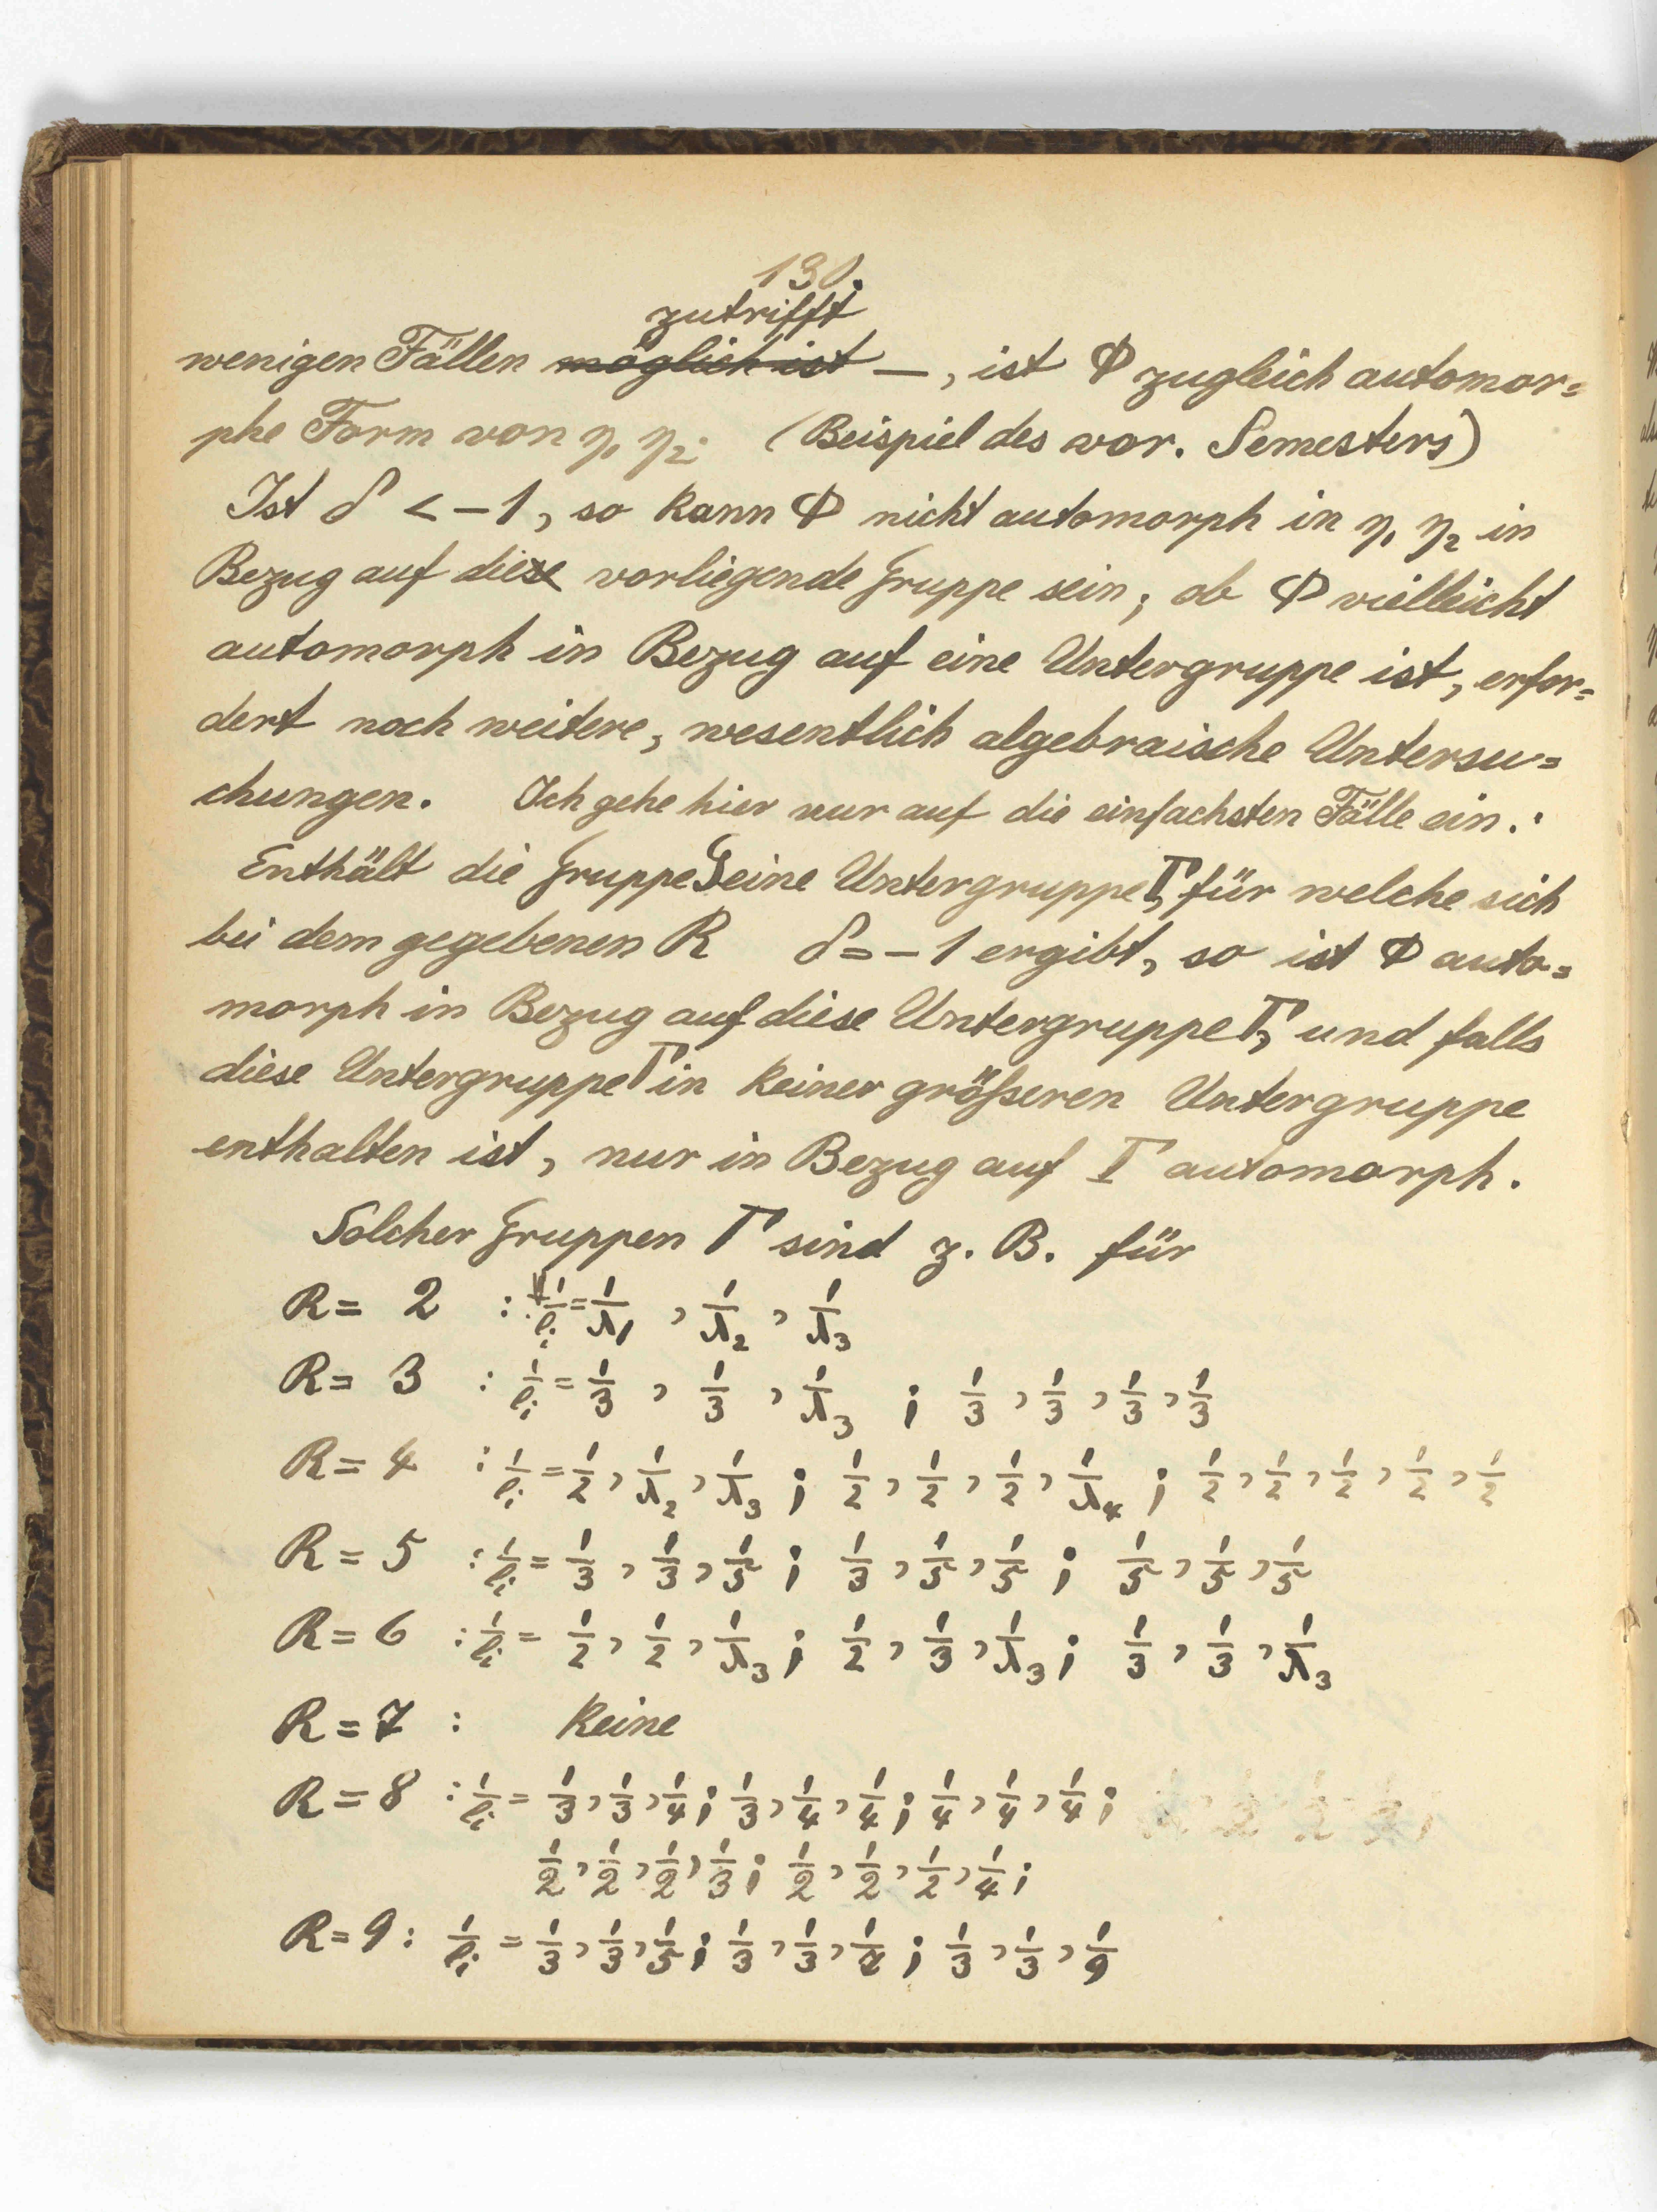 130.
zutrifft
wenigen Fällen möglich ist —, ist Φ zugleich automor=
phe Form von η₁ η₂. (Beispiel des vor. Semesters)
Ist δ < -1, so kann Φ nicht automorph in η₁ η₂ in
Bezug auf diese vorliegende Gruppe sein; ob Φ vielleicht
automorph in Bezug auf eine Untergruppe ist, erfor=
dert noch weitere, wesentlich algebraische Untersu=
chungen. Ich gehe hier nur auf die einfachsten Fälle ein.:
Enthält die Gruppe G eine Untergruppe Γ, für welche sich
bei dem gegebenen R δ = -1 ergibt, so ist Φ auto=
morph in Bezug auf diese Untergruppe Γ, und falls
diese Untergruppe Γ in keiner größeren Untergruppe
enthalten ist, nur in Bezug auf Γ automorph.
Solcher Gruppen Γ sind z. B. für
R = 2 : 1/ℓᵢ = 1/λ₁ , 1/λ₂ , 1/λ₃
R = 3 : 1/ℓᵢ = 1/3 , 1/3 , 1/λ₃ ; 1/3 , 1/3 , 1/3 , 1/3
R = 4 : 1/ℓᵢ = 1/2 , 1/λ₂ , 1/λ₃ ; 1/2 , 1/2 , 1/2 , 1/λ₄ ; 1/2 , 1/2 , 1/2 , 1/2 , 1/2
R = 5 : 1/ℓᵢ = 1/3 , 1/3 , 1/5 ; 1/3 , 1/5 , 1/5 ; 1/5 , 1/5 , 1/5
R = 6 : 1/ℓᵢ = 1/2 , 1/2 , 1/λ₃ ; 1/2 , 1/3 , 1/λ₃ ; 1/3 , 1/3 , 1/λ₃
R = 7 : keine
R = 8 : 1/ℓᵢ = 1/3 , 1/3 , 1/4 ; 1/3 , 1/4 , 1/4 ; 1/4 , 1/4 , 1/4 ;
1/2 , 1/2 , 1/2 , 1/3 ; 1/2 , 1/2 , 1/2 , 1/4 ;
R = 9 : 1/ℓᵢ = 1/3 , 1/3 , 1/5 ; 1/3 , 1/3 , 1/7 ; 1/3 , 1/3 , 1/9